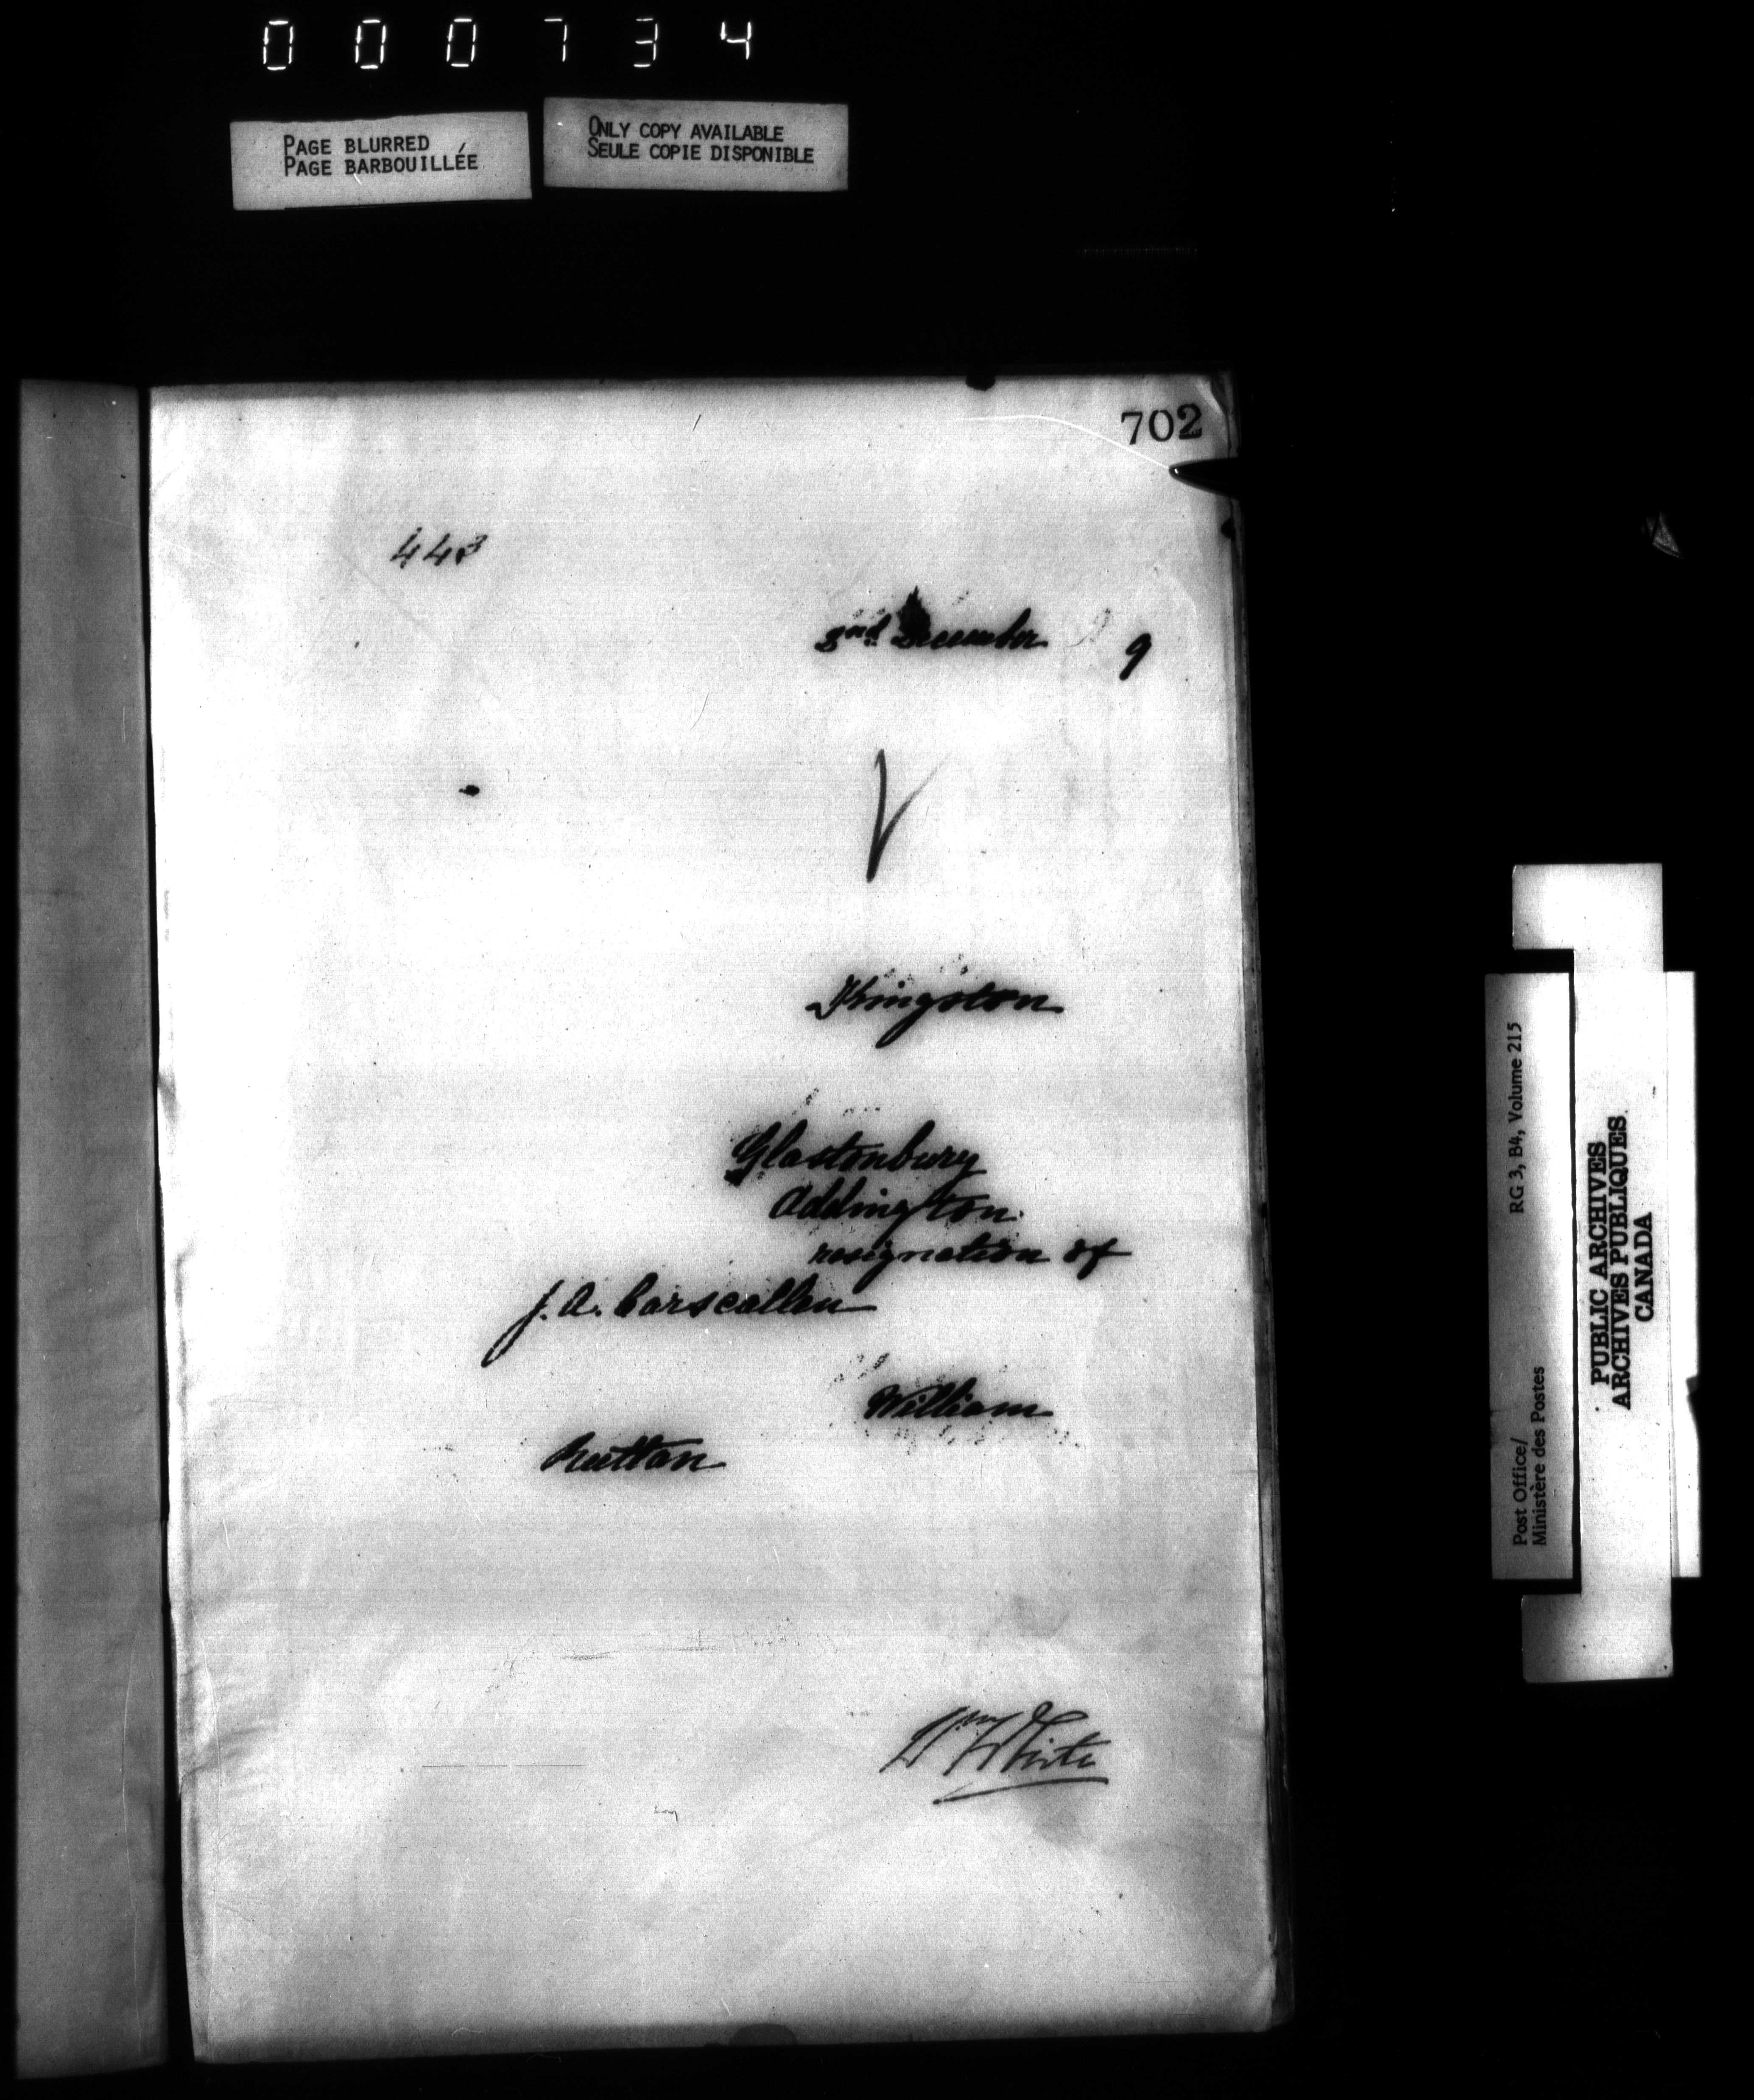 000734
PAGE BLURRED
PAGE BARBOUILLÉE
ONLY COPY AVAILABLE
SEULE COPIE DISPONIBLE
702
443
2nd December 9
Kingston
Glastonbury
Addington
resignation of
J. A. Carscallen
William
Ruttan
Wm White
Post Office/
Ministère des Postes
RG 3, B4, Volume 215
PUBLIC ARCHIVES
ARCHIVES PUBLIQUES
CANADA